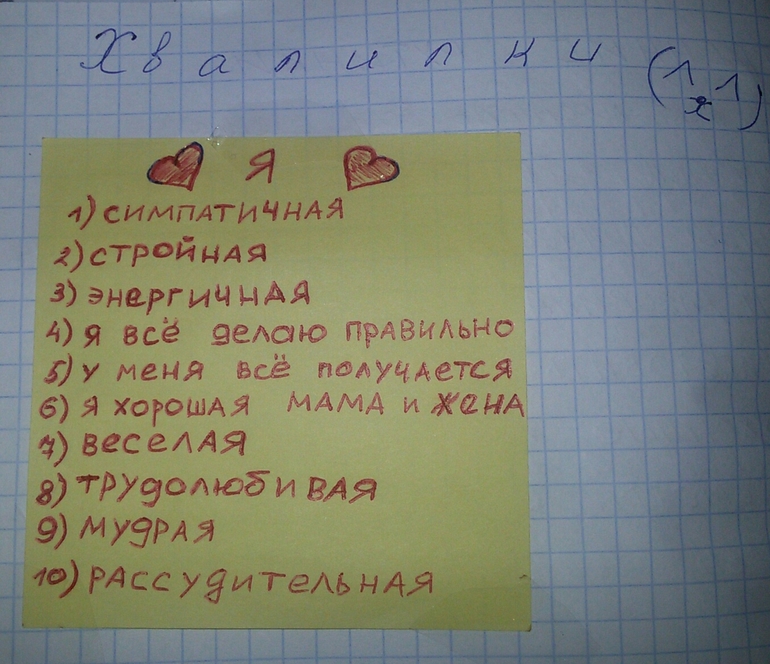 Хвалилки (1я1)
Я
1) симпатичная
2) стройная
3) энергичная
4) я всё делаю правильно
5) у меня всё получается
6) я хорошая мама и жена
7) веселая
8) трудолюбивая
9) мудрая
10) рассудительная